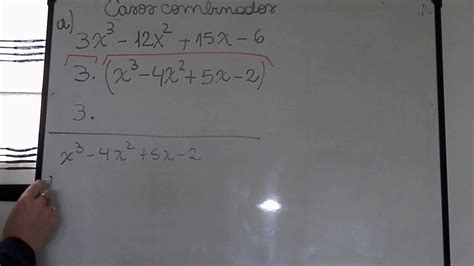 Casos combinados
a)
3x³ - 12x² + 15x - 6
3. (x³ - 4x² + 5x - 2)
3.
x³ - 4x² + 5x - 2